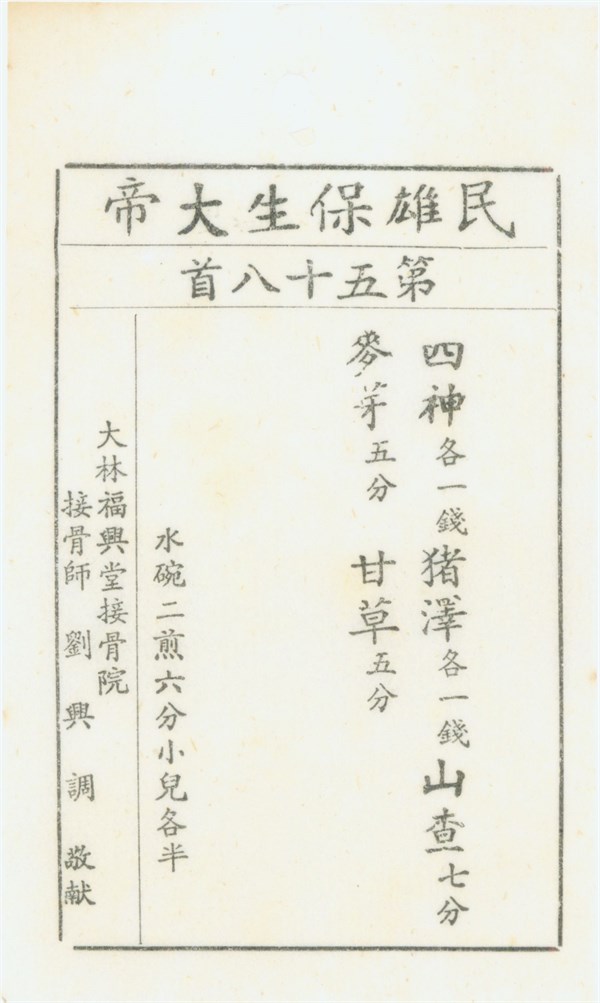 民雄保生大帝
第五十八首
四神各一錢猪澤各一錢山查七分
麥芽五分 甘草五分
水碗二煎六分小兒各半
大林福興堂接骨院
接骨師 劉興調 敬献